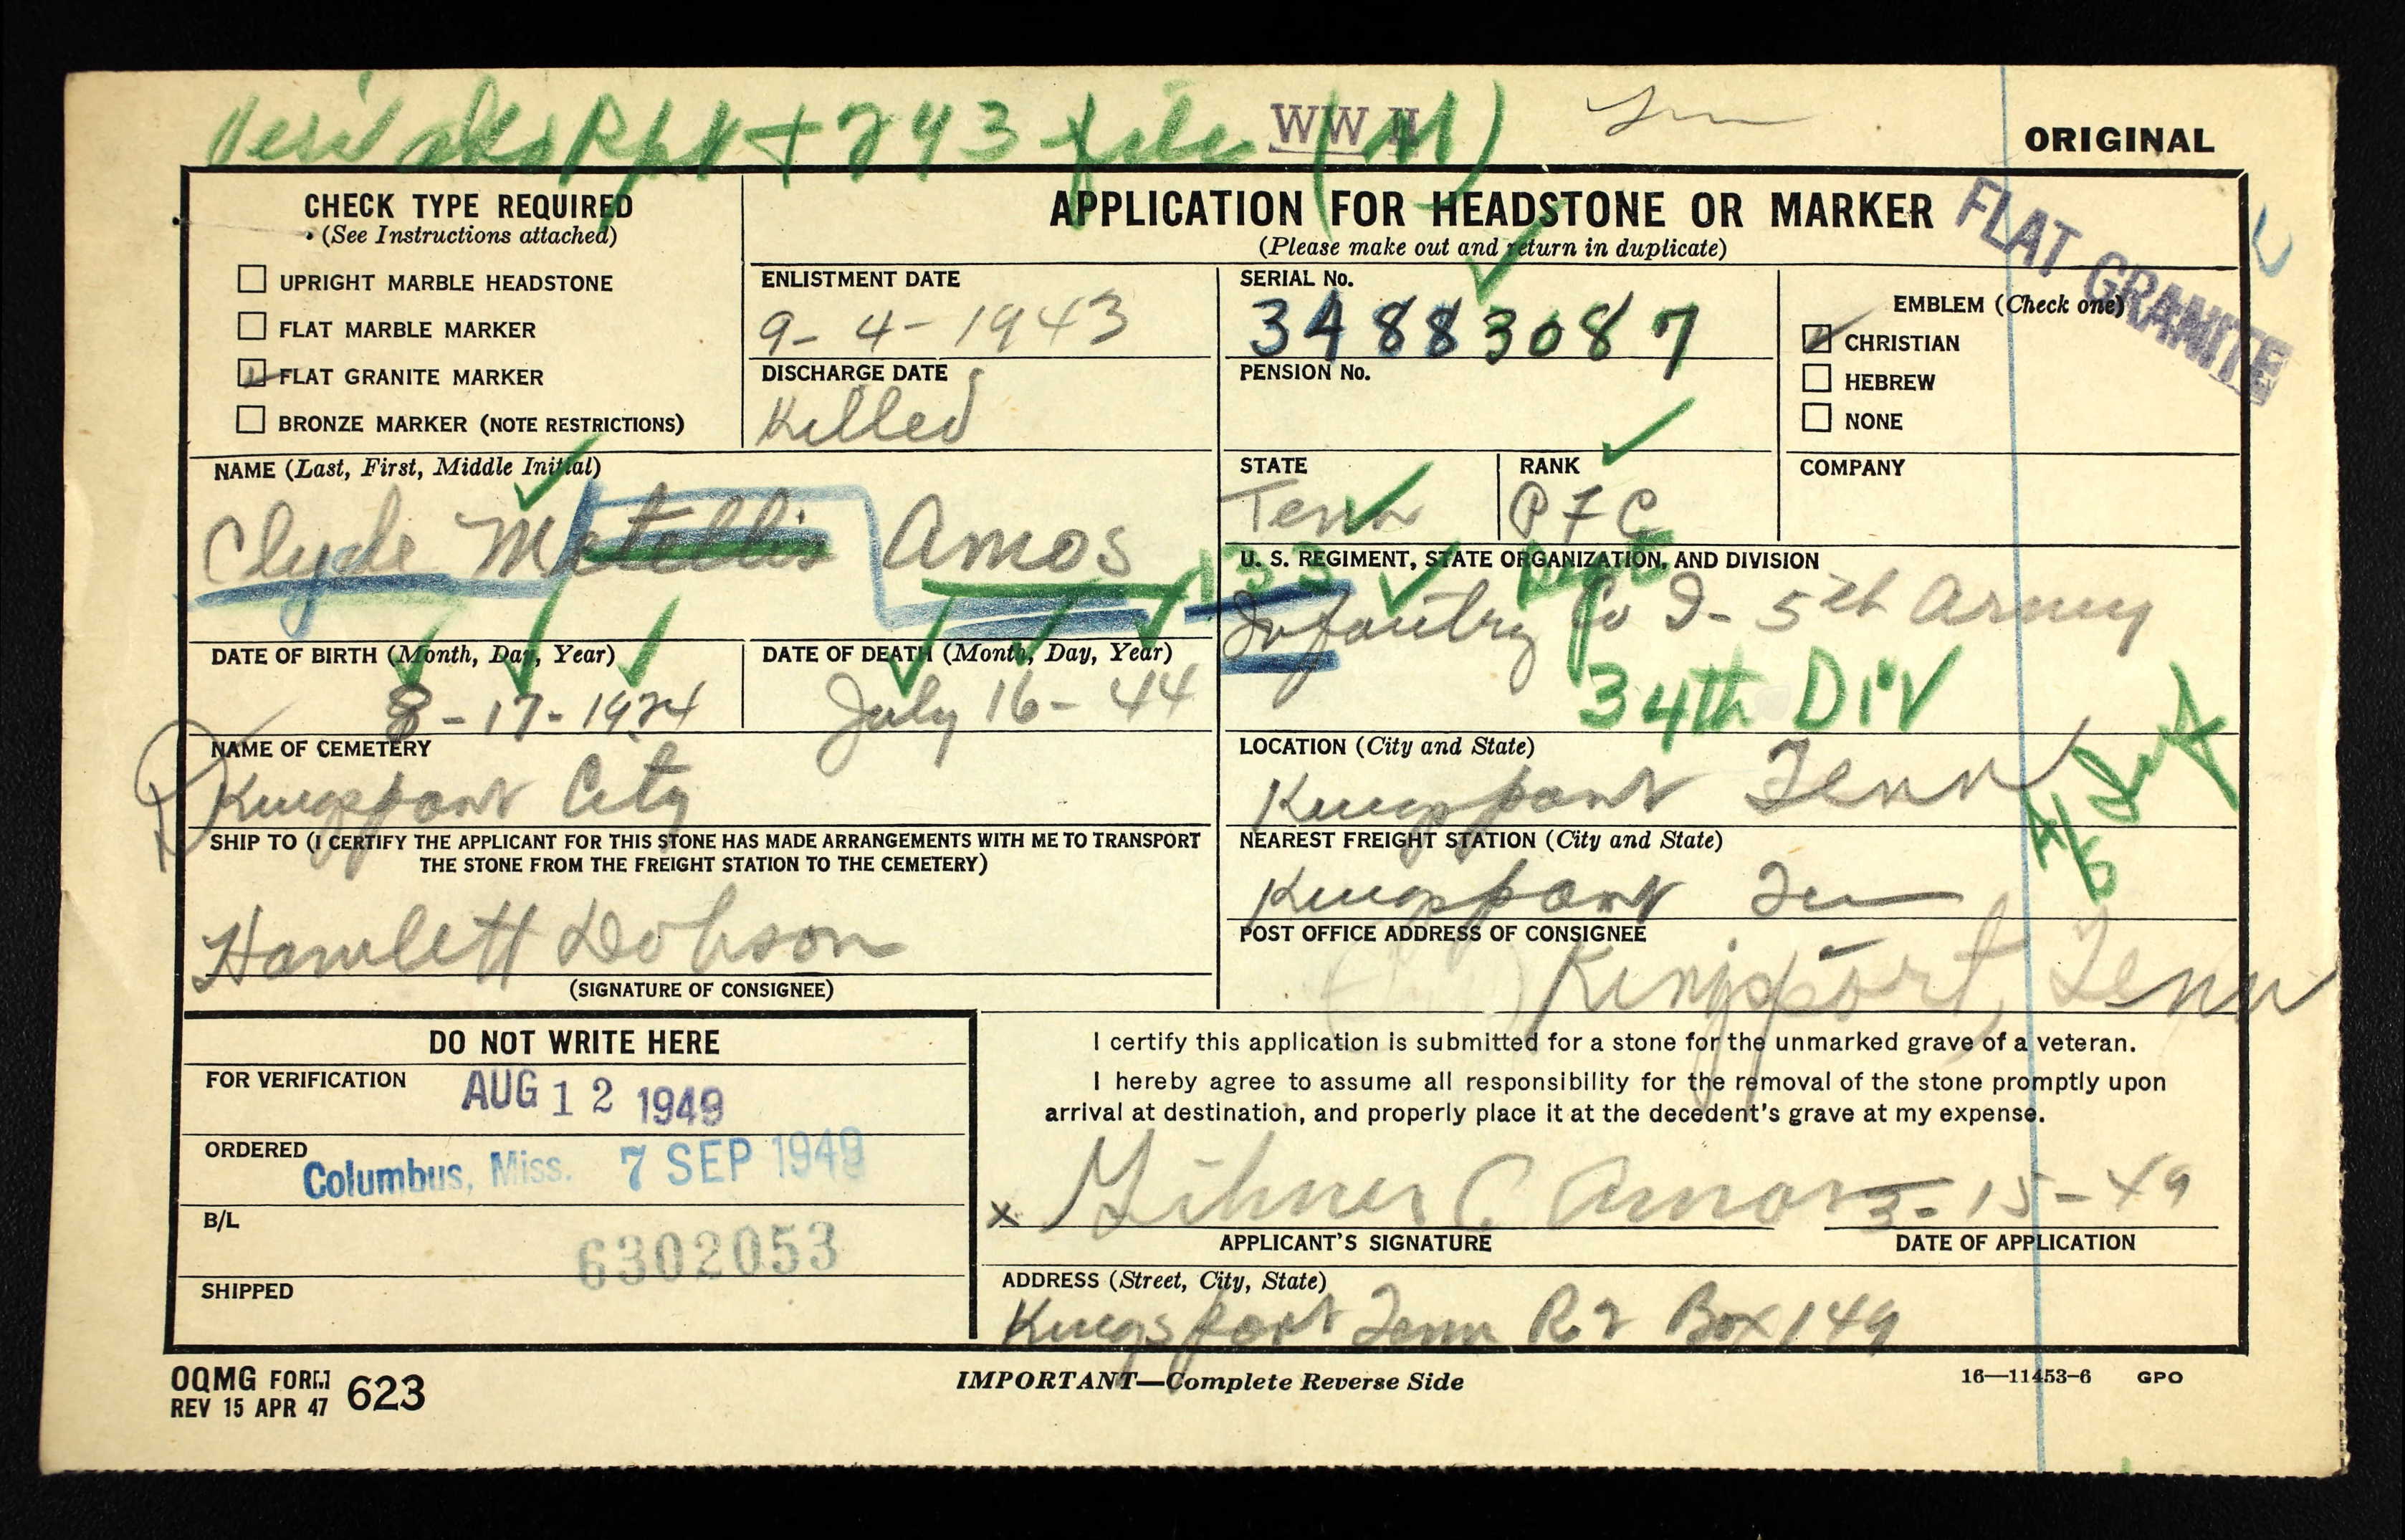 + 293 file (M) WW II
ORIGINAL
FLAT GRANITE
CHECK TYPE REQUIRED
(See Instructions attached)
UPRIGHT MARBLE HEADSTONE
FLAT MARBLE MARKER
FLAT GRANITE MARKER
BRONZE MARKER (NOTE RESTRICTIONS)
APPLICATION FOR HEADSTONE OR MARKER
(Please make out and return in duplicate)
ENLISTMENT DATE
9-4-1943
DISCHARGE DATE
Killed
SERIAL No.
34883087
PENSION No.
EMBLEM (Check one)
CHRISTIAN
HEBREW
NONE
NAME (Last, First, Middle Initial)
Clyde Metellis Amos
STATE
Tenn
RANK
PFC
COMPANY
U. S. REGIMENT, STATE ORGANIZATION, AND DIVISION
133 Regt
Infantry Co I - 5th Army
34th Div
DATE OF BIRTH (Month, Day, Year)
8-17-1924
DATE OF DEATH (Month, Day, Year)
July 16-44
NAME OF CEMETERY
Kingsport City
LOCATION (City and State)
Kingsport Tenn
SHIP TO (I CERTIFY THE APPLICANT FOR THIS STONE HAS MADE ARRANGEMENTS WITH ME TO TRANSPORT
THE STONE FROM THE FREIGHT STATION TO THE CEMETERY)
Hamlett Dobson
(SIGNATURE OF CONSIGNEE)
NEAREST FREIGHT STATION (City and State)
Kingsport Ten
POST OFFICE ADDRESS OF CONSIGNEE
Kingsport, Tenn
DO NOT WRITE HERE
FOR VERIFICATION
AUG 12 1949
ORDERED
Columbus, Miss. 7 SEP 1949
B/L
6302053
SHIPPED
I certify this application is submitted for a stone for the unmarked grave of a veteran.
I hereby agree to assume all responsibility for the removal of the stone promptly upon
arrival at destination, and properly place it at the decedent's grave at my expense.
x C Amos 3-15-49
APPLICANT'S SIGNATURE
DATE OF APPLICATION
ADDRESS (Street, City, State)
Kingsport Tenn R2 Box 149
OQMG FORM 623
REV 15 APR 47
IMPORTANT—Complete Reverse Side
16—11453-6 GPO